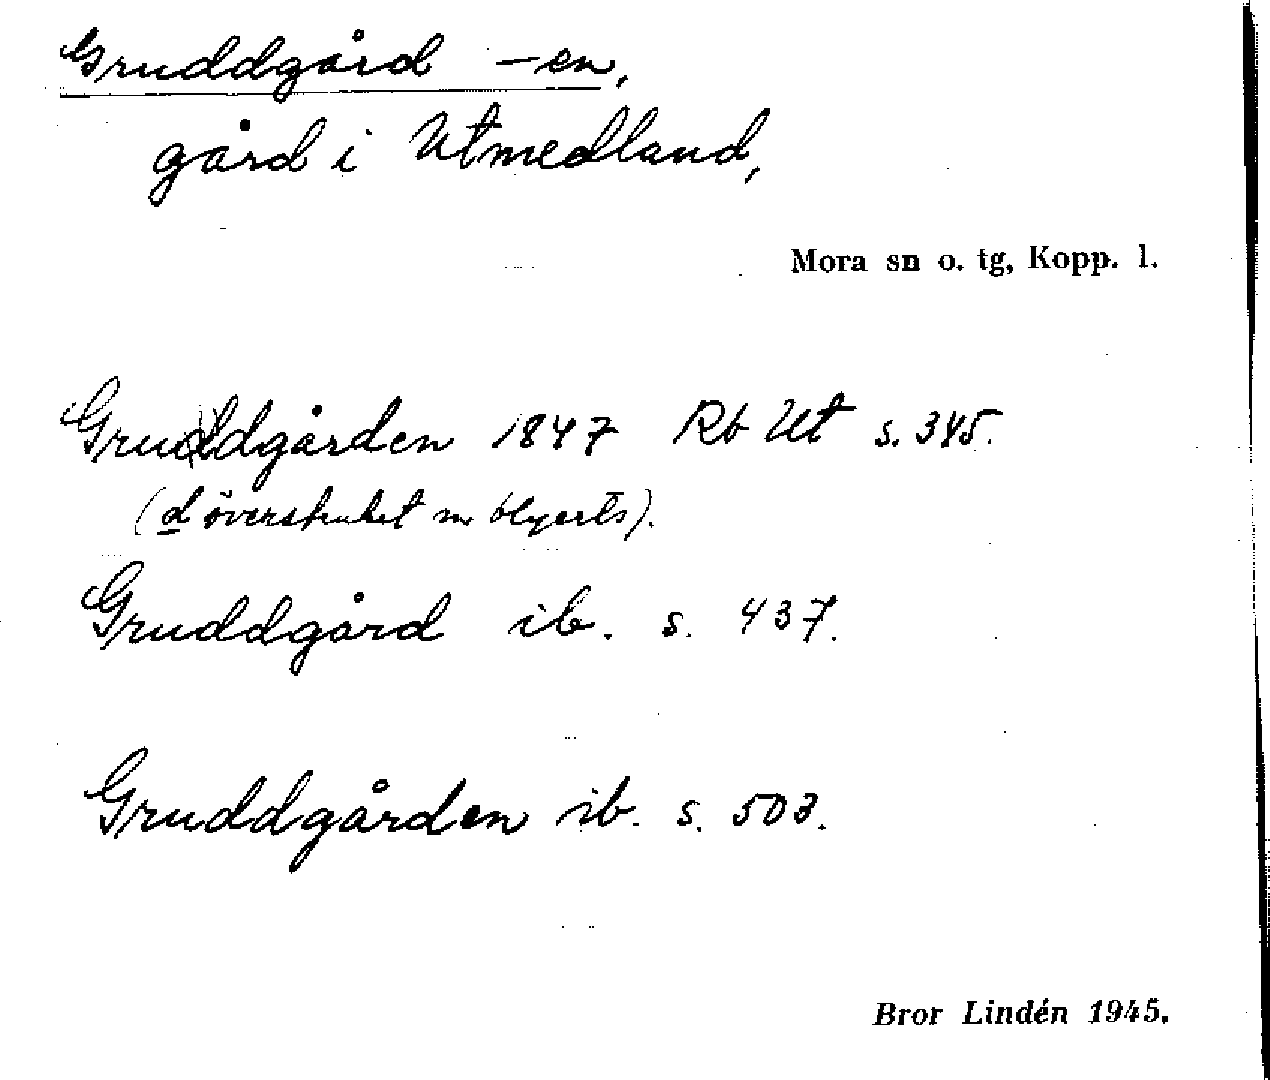 Gruddgård -en,
gård i Utmedland,
Mora sn o. tg, Kopp. l.
Gruddgården 1847 Rb Ut s. 345.
(d överstruket m blyerts).
Gruddgård ib. s. 437.
Gruddgården ib. s. 503.
Bror Lindén 1945.